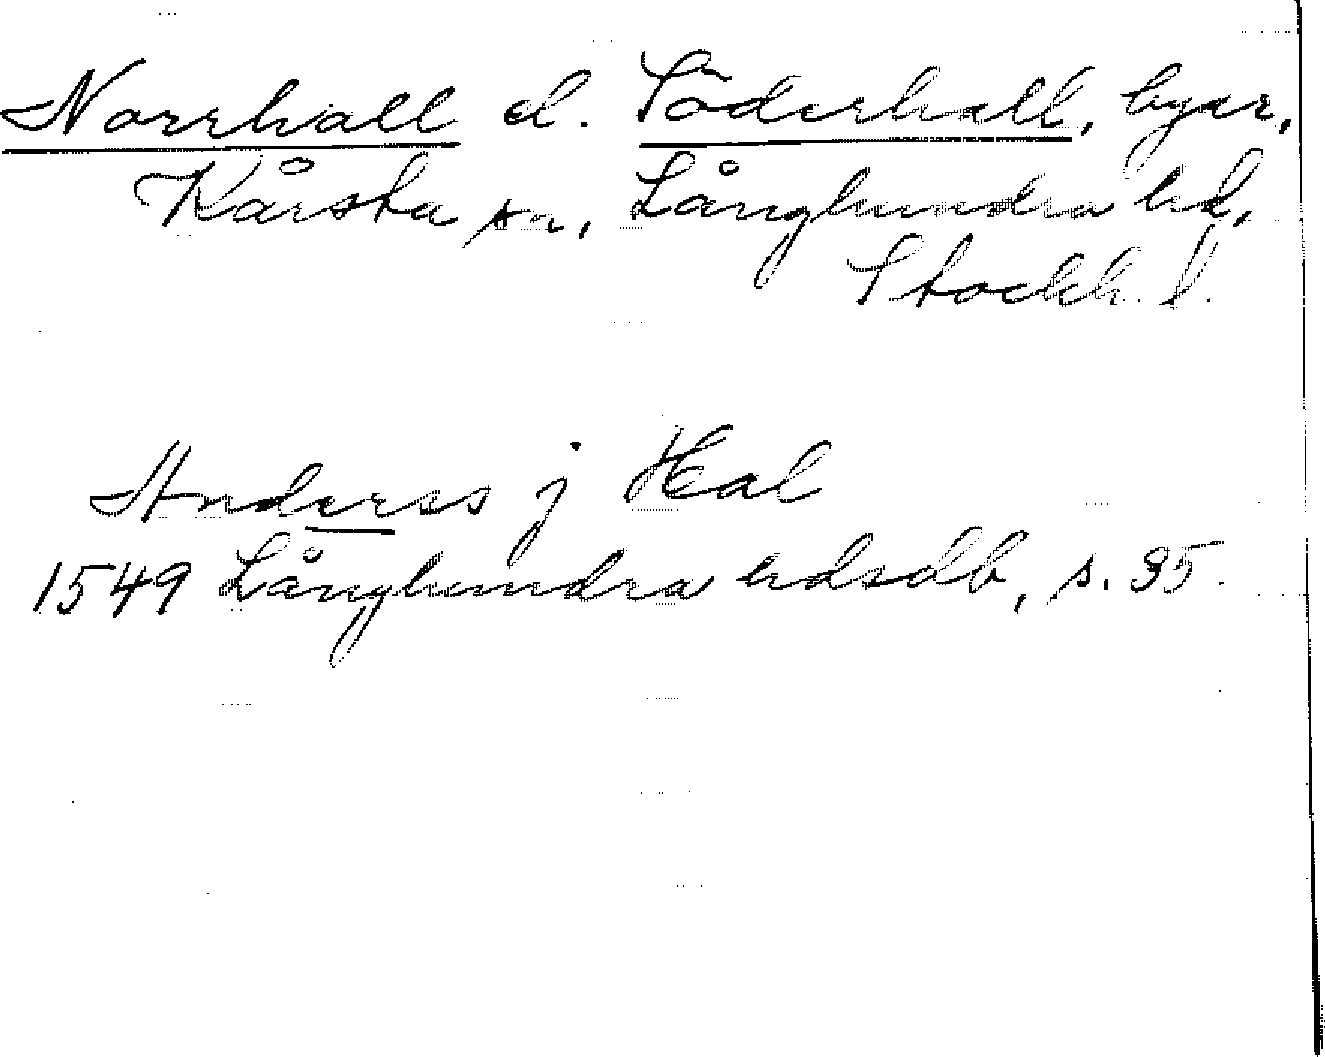 Norrhall el. Söderhall, byar,
Kårsta sn, Långhundra hd,
Stockh. l.
Anders j Hal
1549 Långhundra hdsdb, s. 35.